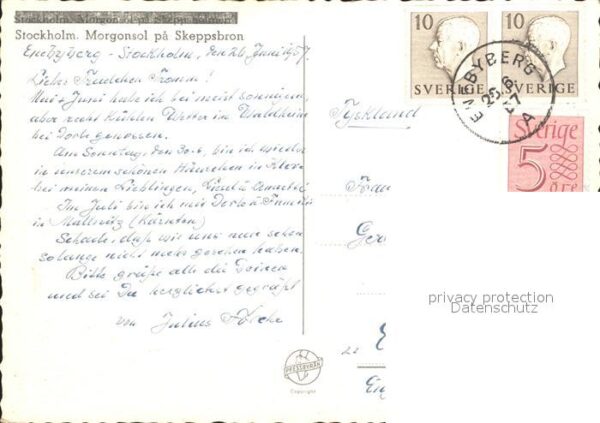 Stockholm. Morgonsol på Skeppsbron
Enebyberg - Stockholm, den 26. Juni 1957
Liebes Frauchen
Mai + Juni habe ich bei meist sonnigem,
aber recht kühlen Wetter im Waldheim
bei Dorle genossen.
Am Sonntag, den 30.6. bin ich wieder
in unserem schönen Häuschen in
bei meinen Lieblingen,
Im Juli bin ich mit Dorle
in Mallnitz (Kärnten)
Schade, daß wir uns nun schon
solange nicht mehr gesehen haben.
Bitte grüße alle die Deinen
und sei Du herzlichst gegrüßt
von Julius
10
SVERIGE
10
SVERIGE
ENEBYBERG
A
Sverige
5
öre
Tyskland
PRESSBYRÅN
Copyright
privacy protection
Datenschutz